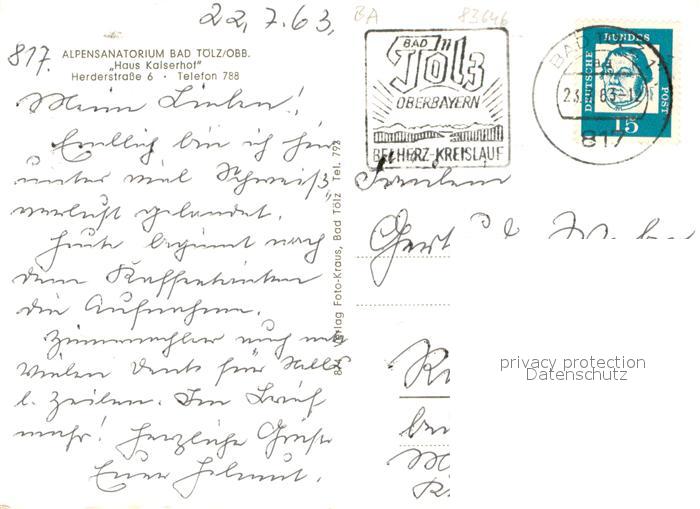 22.7.63.
BA 83646
817.
ALPENSANATORIUM BAD TÖLZ/OBB.
„Haus Kaiserhof"
Herderstraße 6 · Telefon 788
Meine Lieben!
Endlich bin ich hier
unter viel Schweiß-
verlust gelandet.
Heute beginnt nach
dem Kaffeetrinken
die Aufnahme.
Zimmernachbar auch nett
vielen Dank für
l. Zeilen. Im Brief
mehr! Herzliche Grüße
Euer Helmut.
Verlag Foto-Kraus, Bad Tölz Tel. 792
BAD Tölz
OBERBAYERN
BEI HERZ-KREISLAUF
BAD TÖLZ 1
817
DEUTSCHE BUNDES POST
15
Fräulein
privacy protection
Datenschutz